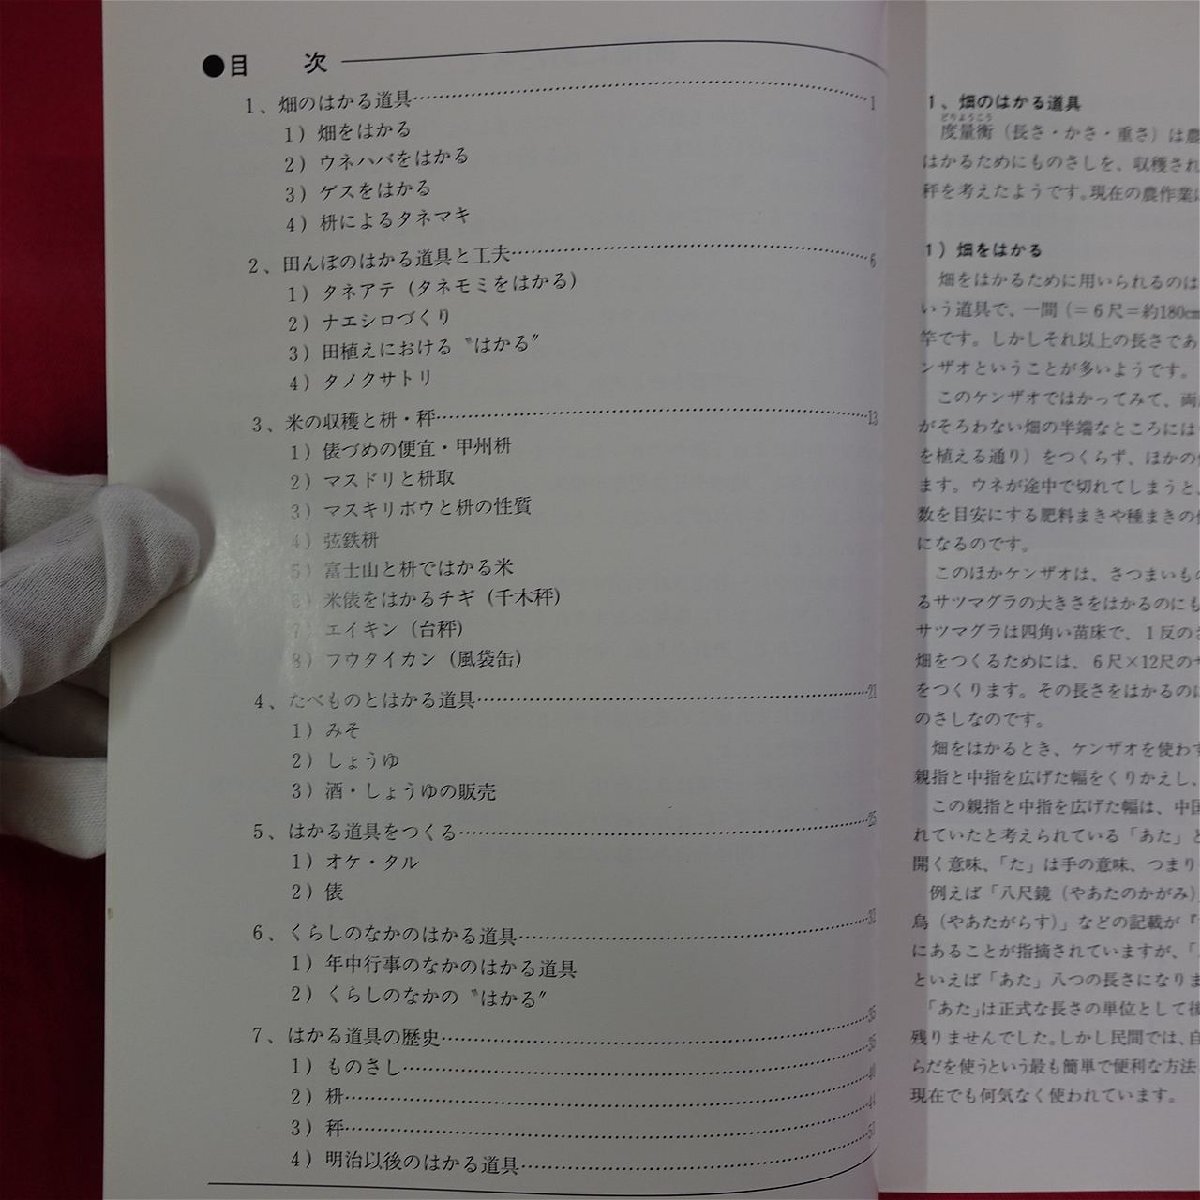 ●目　次
1、畑のはかる道具 1
1）畑をはかる
2）ウネハバをはかる
3）ゲスをはかる
4）枡によるタネマキ
2、田んぼのはかる道具と工夫 6
1）タネアテ（タネモミをはかる）
2）ナエシロづくり
3）田植えにおける〝はかる〟
4）タノクサトリ
3、米の収穫と枡・秤 13
1）俵づめの便宜・甲州枡
2）マスドリと枡取
3）マスキリボウと枡の性質
4）弦鉄枡
5）富士山と枡ではかる米
6）米俵をはかるチギ（千木秤）
7）エイキン（台秤）
8）フウタイカン（風袋缶）
4、たべものとはかる道具 21
1）みそ
2）しょうゆ
3）酒・しょうゆの販売
5、はかる道具をつくる 25
1）オケ・タル
2）俵
6、くらしのなかのはかる道具 33
1）年中行事のなかのはかる道具
2）くらしのなかの〝はかる〟
7、はかる道具の歴史 35
1）ものさし 35
2）枡 40
3）秤 44
4）明治以後のはかる道具
1、畑のはかる道具
どりょうこう
度量衡（長さ・かさ・重さ）は農
はかるためにものさしを、収穫され
秤を考えたようです。現在の農作業に
1）畑をはかる
畑をはかるために用いられるのは
いう道具で、一間（＝6尺＝約180cm
竿です。しかしそれ以上の長さであ
ンザオということが多いようです。
このケンザオではかってみて、両
がそろわない畑の半端なところには
を植える通り）をつくらず、ほかの
ます。ウネが途中で切れてしまうと、
数を目安にする肥料まきや種まきの
になるのです。
このほかケンザオは、さつまいも
るサツマグラの大きさをはかるのにも
サツマグラは四角い苗床で、1反の
畑をつくるためには、6尺×12尺の
をつくります。その長さをはかるのに
のさしなのです。
畑をはかるとき、ケンザオを使わず
親指と中指を広げた幅をくりかえし、
この親指と中指を広げた幅は、中国
れていたと考えられている「あた」と
開く意味、「た」は手の意味、つまり
例えば「八尺鏡（やあたのかがみ）
烏（やあたがらす）」などの記載が「
にあることが指摘されていますが、「
といえば「あた」八つの長さになりま
「あた」は正式な長さの単位として後
残りませんでした。しかし民間では、自
らだを使うという最も簡単で便利な方法
現在でも何気なく使われています。